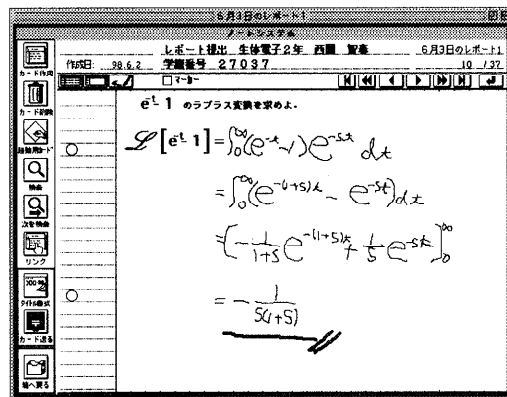 6月3日のレポート1
ノートシステム
レポート提出 生体電子2年 西園
6月3日のレポート1
作成日: 98.6.2 学籍番号 27037
10 /37
カード作成
マーカー
カード削除
検索
次を検索
リンク
タイトル書式
カード送る
箱へ戻る
e^-t - 1 のラプラス変換を求めよ.
ℒ[e^-t - 1] = ∫_0^∞ (e^-t - 1) e^-st dt
= ∫_0^∞ (e^-(1+s)t - e^-st) dt
= [-1/(1+s) e^-(1+s)t + 1/s e^-st]_0^∞
= - 1/(s(1+s))